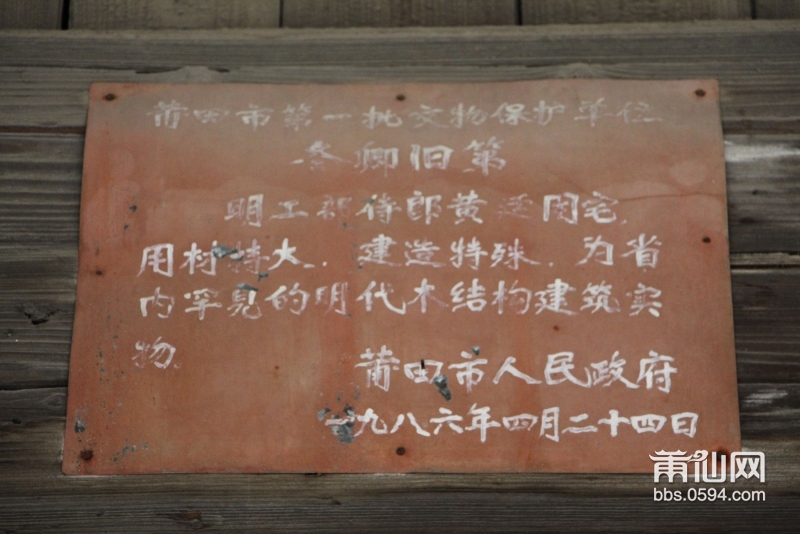 莆田市第一批文物保护单位
冬卿旧第
明工部侍郎黄廷用宅.
用材特大. 建造特殊. 为省
内罕见的明代木结构建筑实
物.
莆田市人民政府
一九八六年四月二十四日
莆仙网
bbs.0594.com